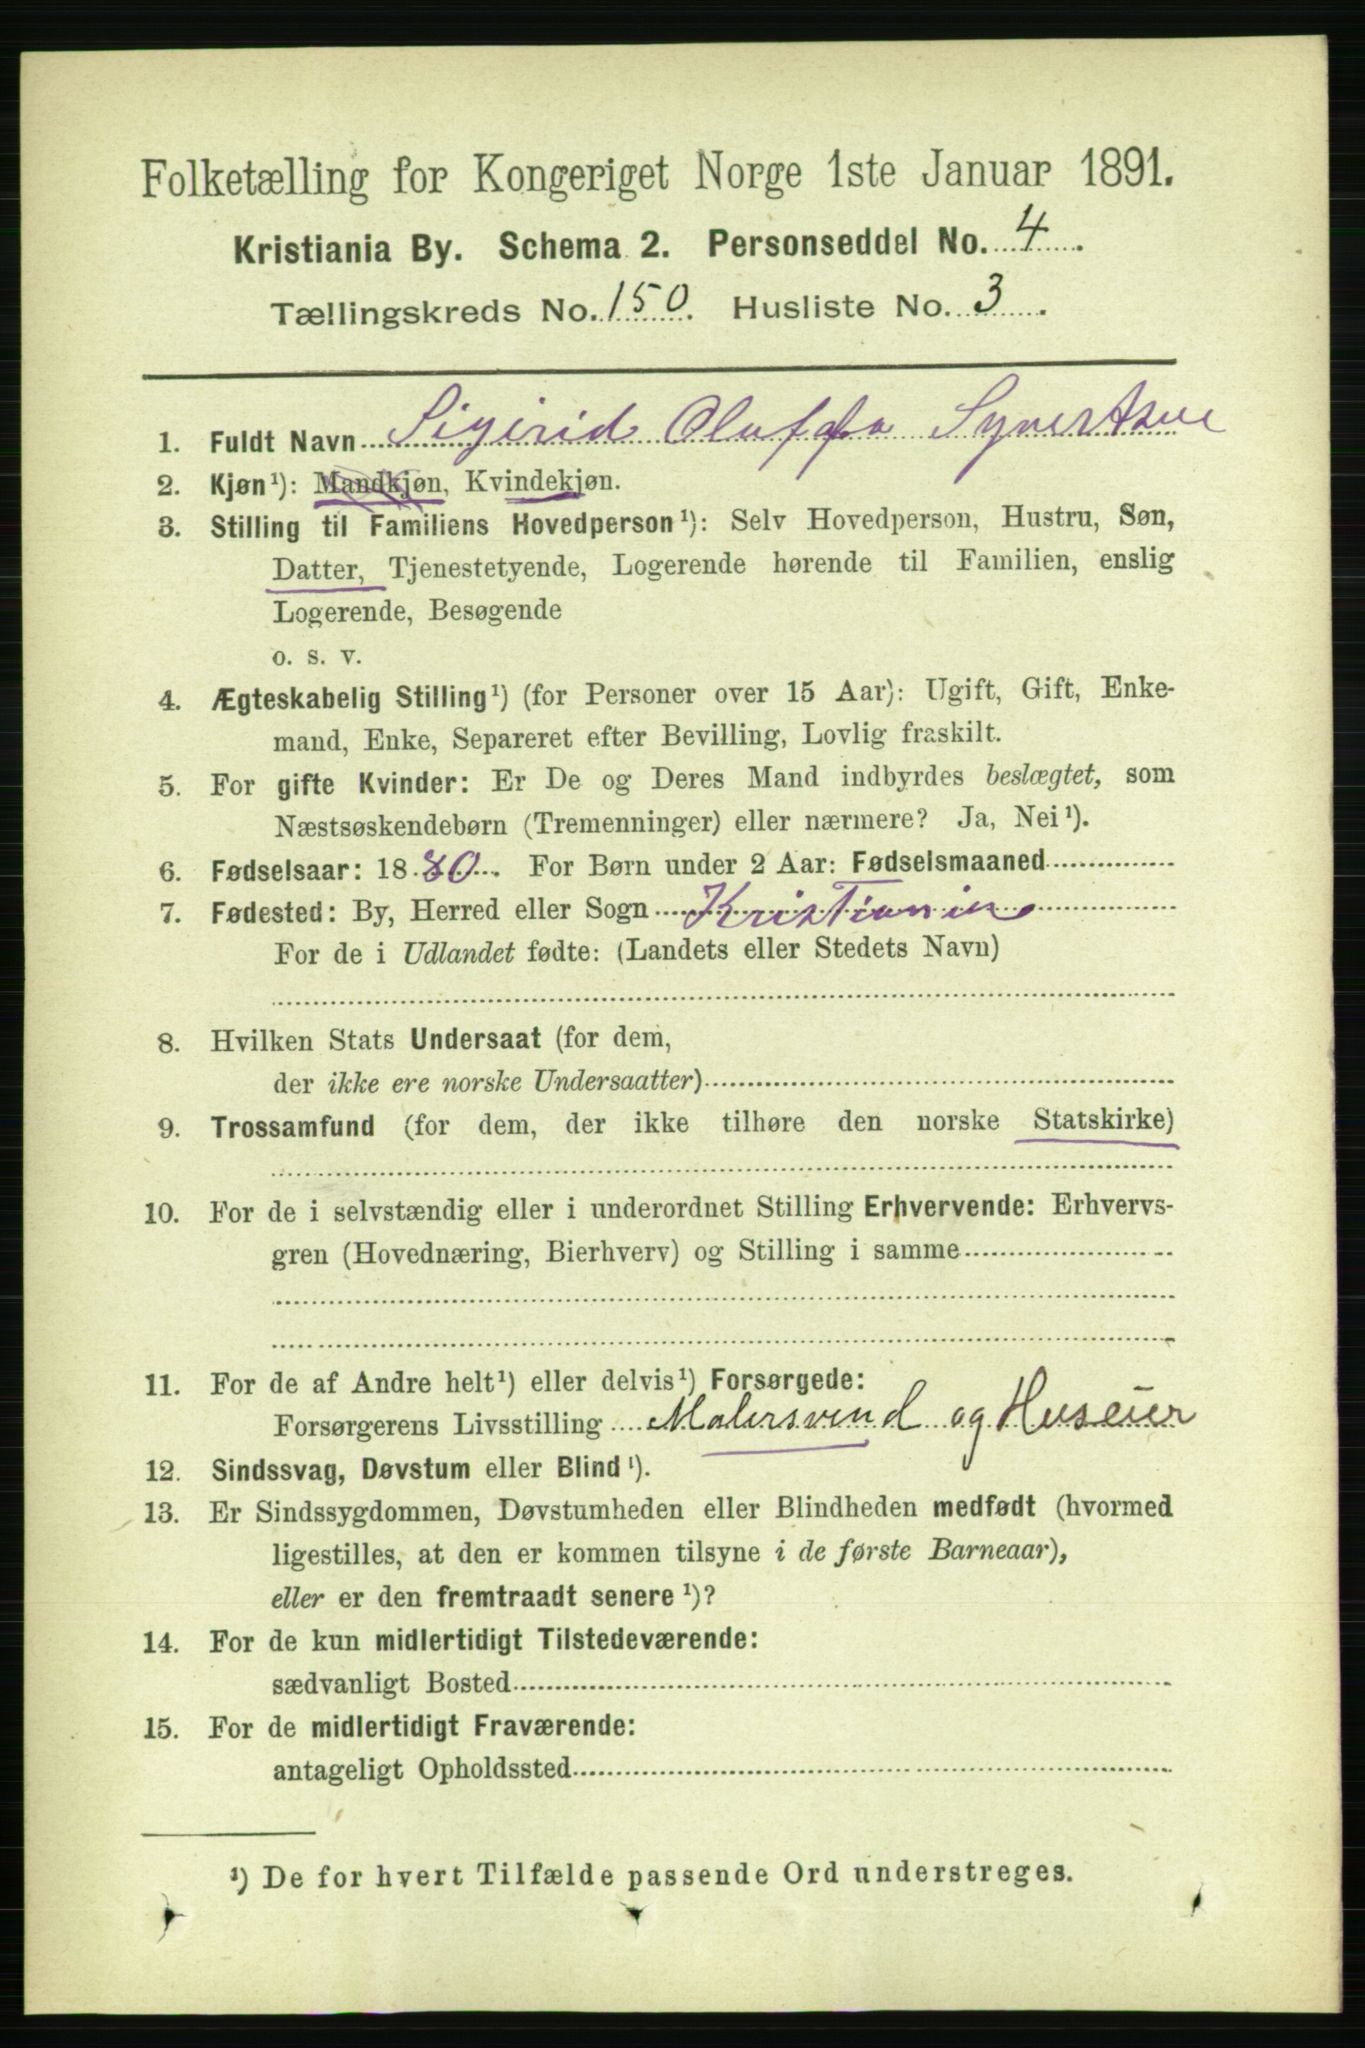 Folketælling for Kongeriget Norge 1ste Januar 1891.
Kristiania By. Schema 2. Personseddel No. 4.
Tællingskreds No. 150. Husliste No. 3.
1. Fuldt Navn Sigirid Oluffa Syvertsen
2. Kjøn¹): Mandkjøn, Kvindekjøn.
3. Stilling til Familiens Hovedperson¹): Selv Hovedperson, Hustru, Søn,
Datter, Tjenestetyende, Logerende hørende til Familien, enslig
Logerende, Besøgende
o. s. v.
4. Ægteskabelig Stilling¹) (for Personer over 15 Aar): Ugift, Gift, Enke-
mand, Enke, Separeret efter Bevilling, Lovlig fraskilt.
5. For gifte Kvinder: Er De og Deres Mand indbyrdes beslægtet, som
Næstsøskendebørn (Tremenninger) eller nærmere? Ja, Nei¹).
6. Fødselsaar: 1880. For Børn under 2 Aar: Fødselsmaaned
7. Fødested: By, Herred eller Sogn Kristiania
For de i Udlandet fødte: (Landets eller Stedets Navn)
8. Hvilken Stats Undersaat (for dem,
der ikke ere norske Undersaatter)
9. Trossamfund (for dem, der ikke tilhøre den norske Statskirke)
10. For de i selvstændig eller i underordnet Stilling Erhvervende: Erhvervs-
gren (Hovednæring, Bierhverv) og Stilling i samme
11. For de af Andre helt¹) eller delvis¹) Forsørgede:
Forsørgerens Livsstilling Malersvend og Huseier
12. Sindssvag, Døvstum eller Blind¹).
13. Er Sindssygdommen, Døvstumheden eller Blindheden medfødt (hvormed
ligestilles, at den er kommen tilsyne i de første Barneaar),
eller er den fremtraadt senere¹)?
14. For de kun midlertidigt Tilstedeværende:
sædvanligt Bosted
15. For de midlertidigt Fraværende:
antageligt Opholdssted
¹) De for hvert Tilfælde passende Ord understreges.